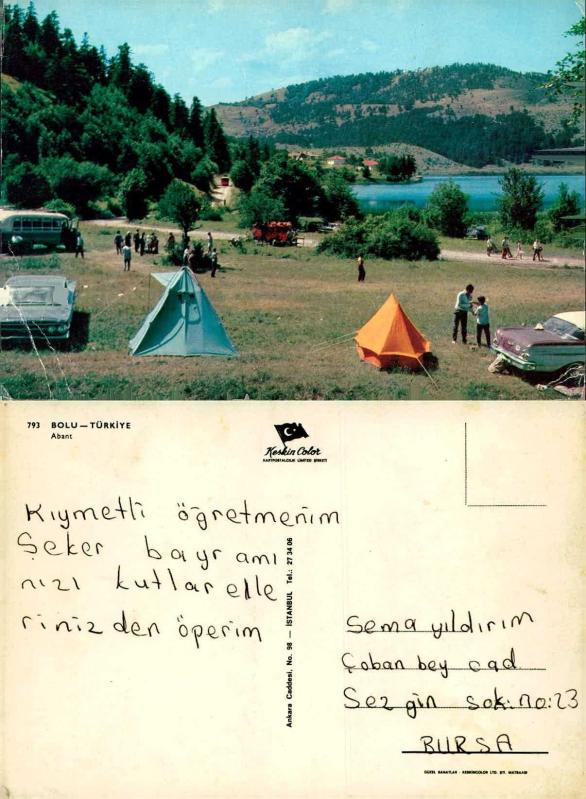 793 BOLU — TÜRKİYE
Abant
Keskin Color
KARTPOSTALCILIK LİMİTED ŞİRKETİ
Kıymetli öğretmenim
Şeker bayramı
nızı kutlar elle
riniz den öperim
Ankara Caddesi, No. 98 — İSTANBUL Tel.: 27 34 06
Sema yıldırım
Çoban bey cad
Sezgin sok: no:23
BURSA
GÜZEL SANATLAR - KESKİNCOLOR LTD. ŞTİ. MATBAASI